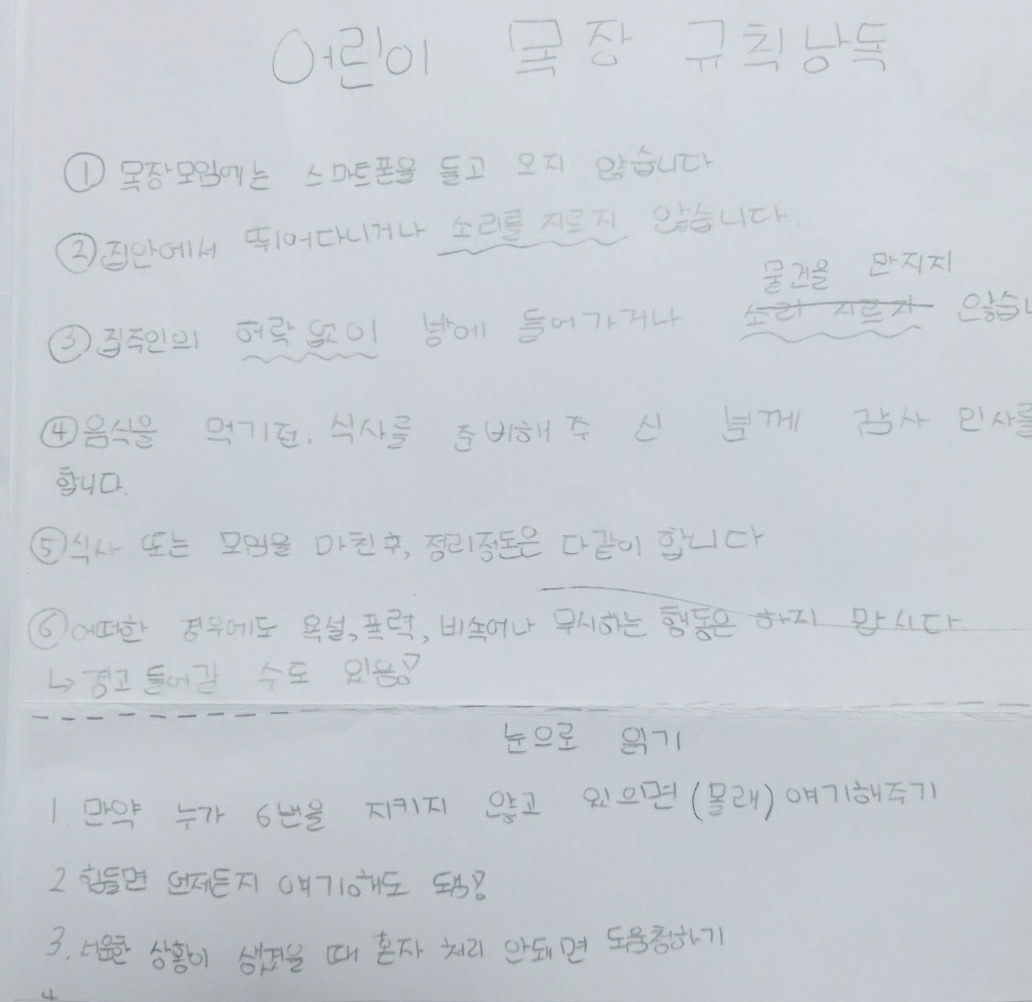 어린이 목장 규칙낭독
① 목장모임에는 스마트폰을 들고 오지 않습니다.
② 집안에서 뛰어다니거나 소리를 지르지 않습니다.
물건을 만지지
③ 집주인의 허락 없이 방에 들어가거나 소리 지르지 않습니
④ 음식을 먹기전, 식사를 준비해 주 신 분께 감사 인사를
합니다.
⑤ 식사 또는 모임을 마친후, 정리정돈은 다같이 합니다
⑥ 어떠한 경우에도 욕설, 폭력, 비속어나 무시하는 행동은 하지 맙시다
↳ 경고 들어갈 수도 있음?
눈으로 읽기
1. 만약 누가 6번을 지키지 않고 있으면 (몰래) 얘기해주기
2 힘들면 언제든지 얘기해도 돼?
3. 서운한 상황이 생겼을 때 혼자 처리 안돼면 도움청하기
4